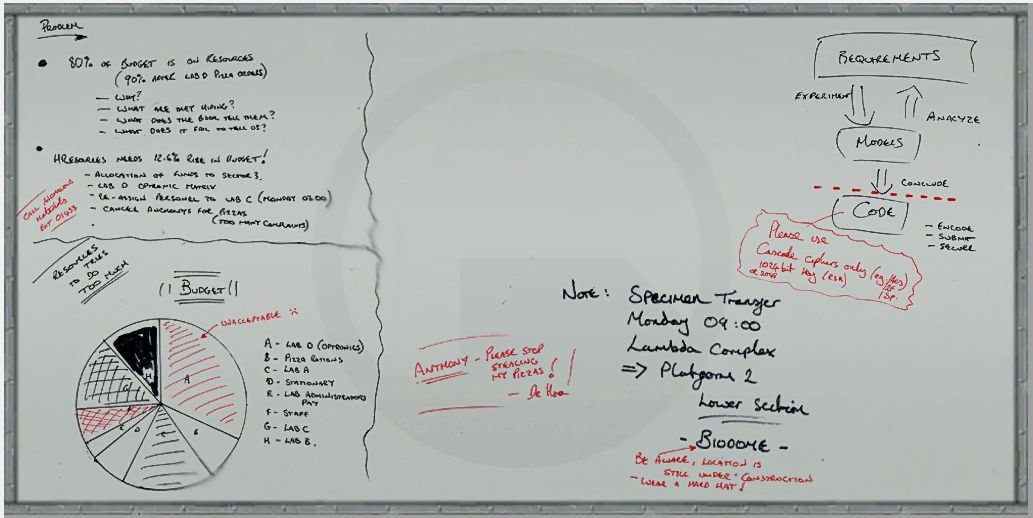 PROBLEM
80% OF BUDGET IS ON RESOURCES
(90% AFTER LAB D PIZZA ORDERS)
- WHY?
- WHAT ARE THEY HIDING?
- WHAT DOES THE BOOK TELL THEM?
- WHAT DOES IT FAIL TO TELL US?
HRESORCES NEEDS 12.6% RISE IN BUDGET!
- ALLOCATION OF FUNDS TO SECTOR 3.
- LAB D OPTRONIC MATRIX
- RE-ASSIGN PERSONEL TO LAB C (MONDAY 07:00)
- CANCEL ANCHONYS FOR PIZZAS
(TOO MANY COMPLAINTS)
CALL ANOMALOUS
MATERIALS
EXT 01433
RESOURCES
TO TRIES
TO DO
TOO MUCH
BUDGET
UNACCEPTABLE
A
B
C
D
E
F
G
H
A - LAB D (OPTRONICS)
B - PIZZA RATIONS
C - LAB A
D - STATIONARY
E - LAB ADMINISTRATORS
PAY
F - STAFF
G - LAB C
H - LAB B.
ANTHONY - PLEASE STOP
STEALING
MY PIZZAS!
REQUIREMENTS
EXPERIMENT
ANALYZE
MODELS
CONCLUDE
CODE
- ENCODE
- SUBMIT
- SECURE
Please use
Cascade ciphers only (eg. AES)
1024 bit Key (RSA)
or 2048
NOTE: Specimen Transfer
Monday 09:00
Lambda Complex
=> Platform 2
Lower Section
- BIODOME -
BE AWARE, LOCATION IS
STILL UNDER-CONSTRUCTION
- WEAR A HARD HAT!